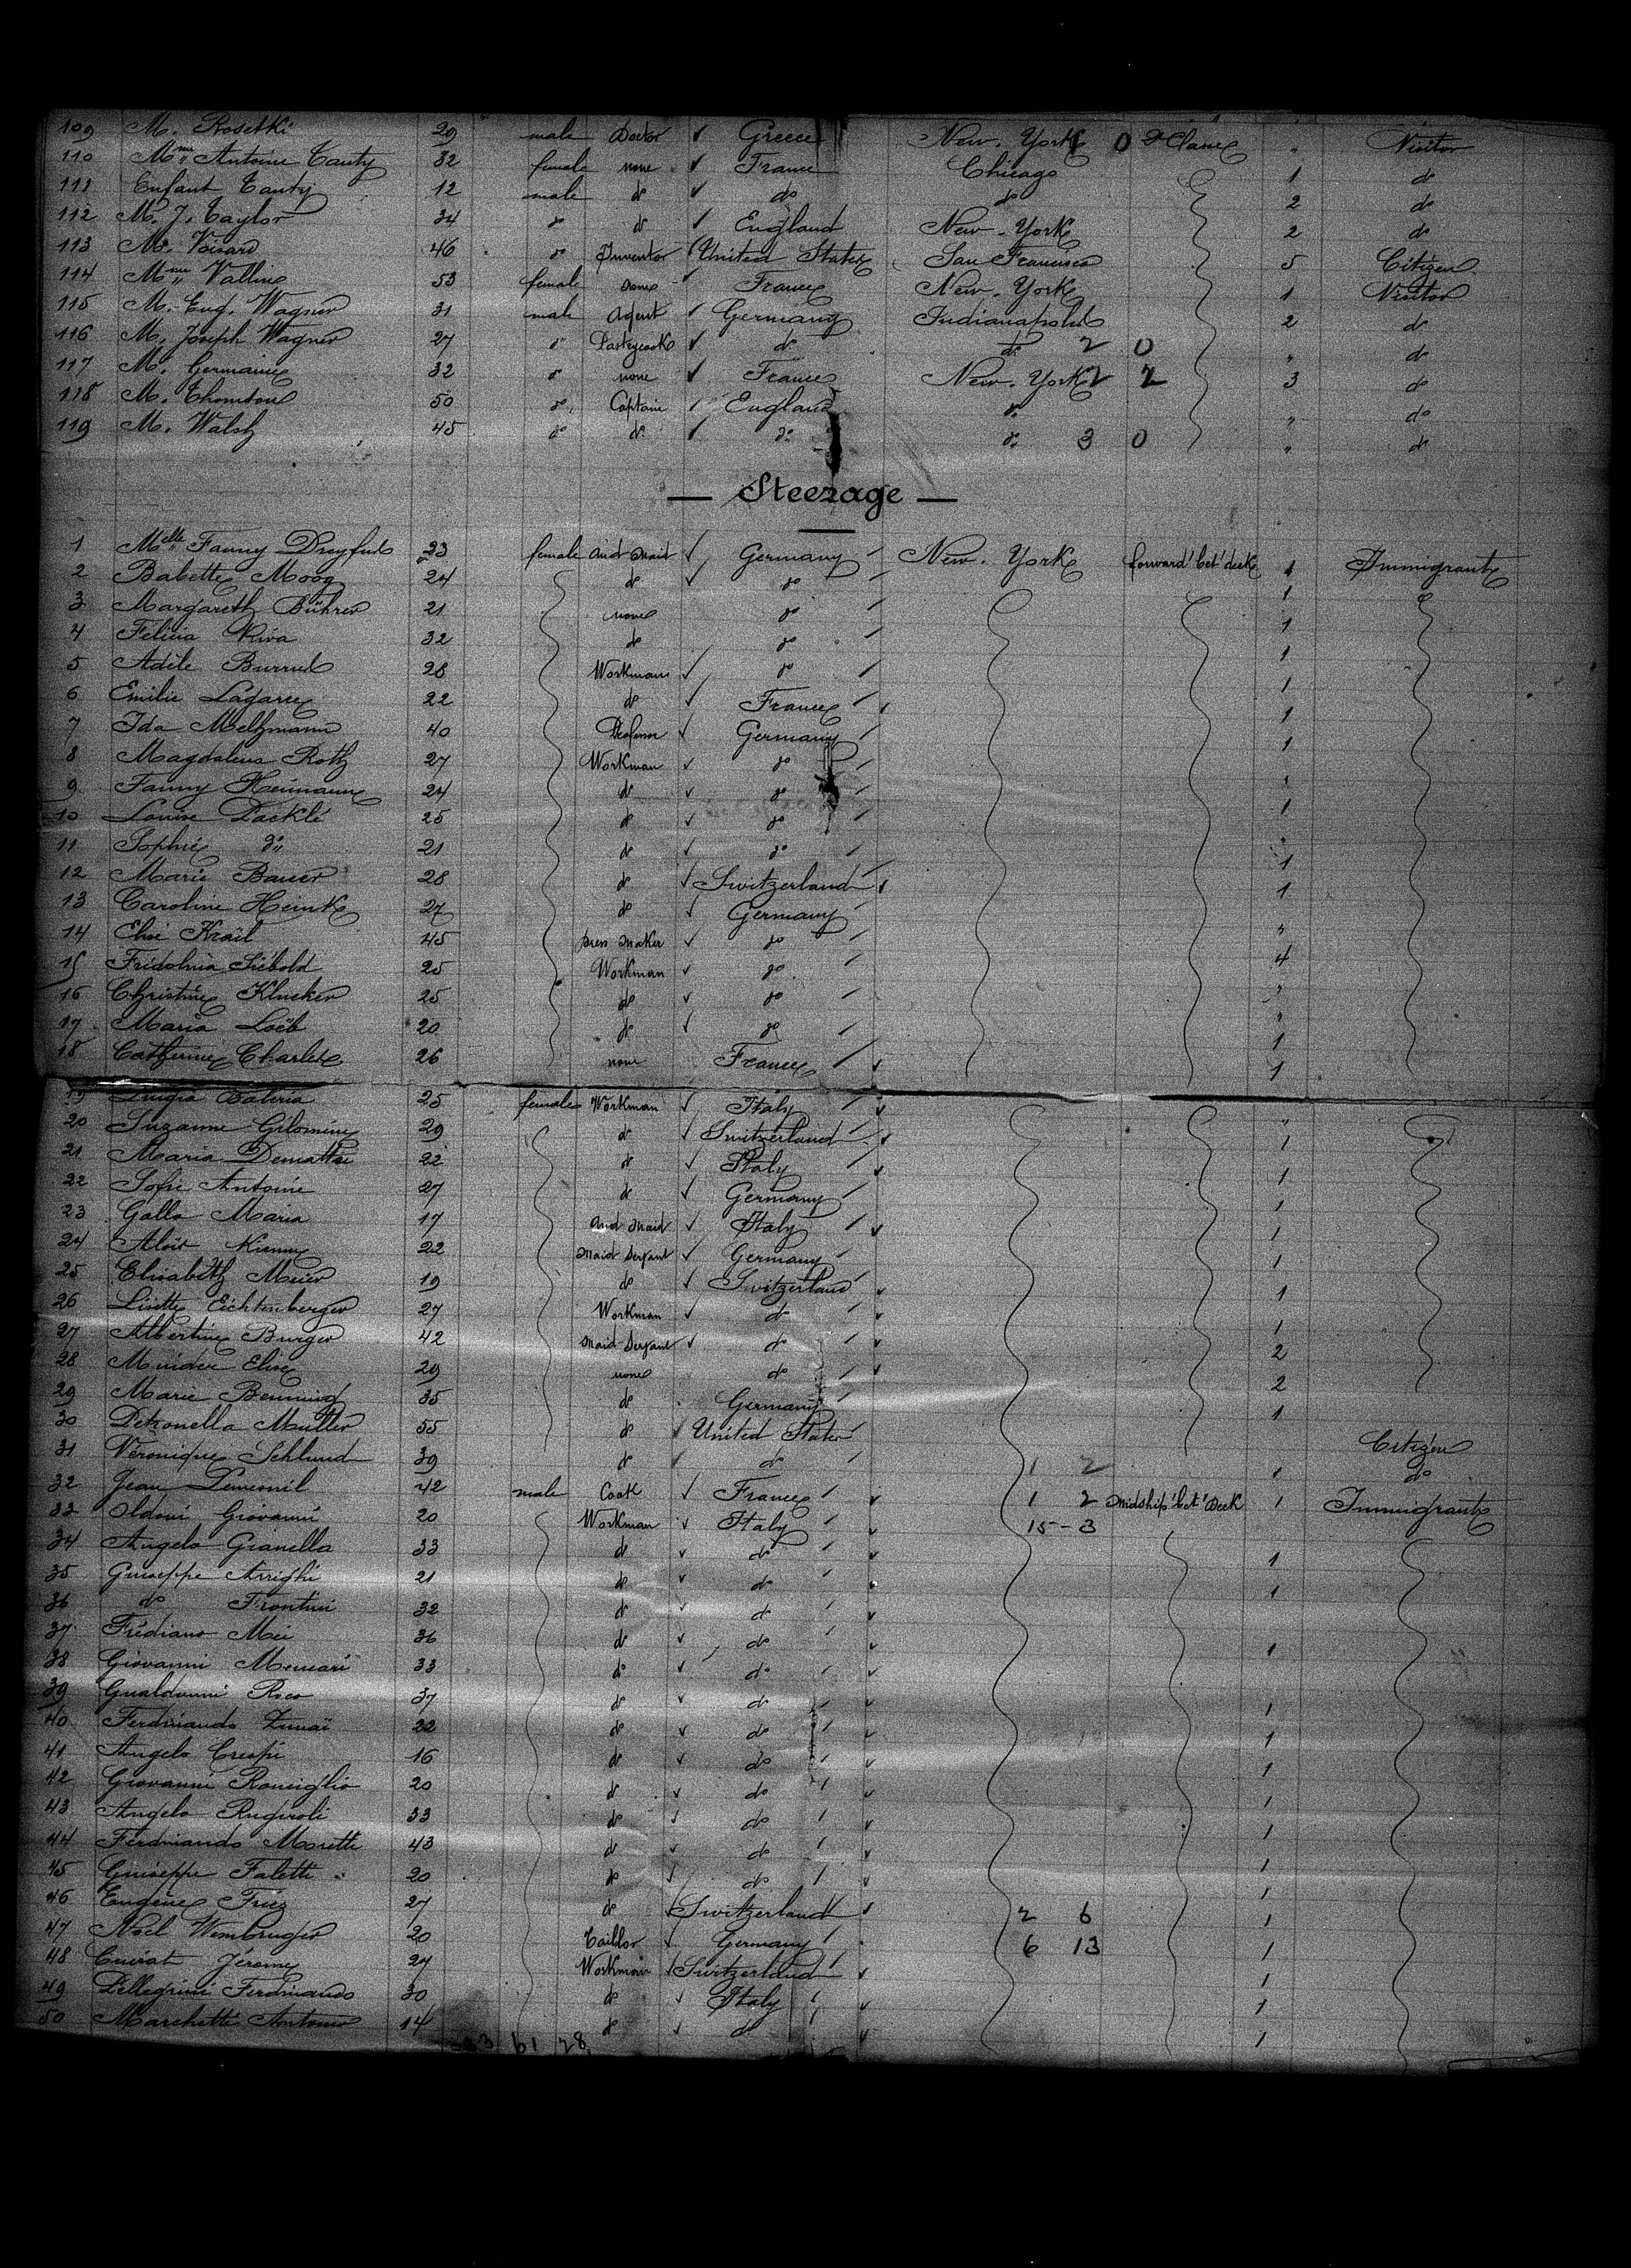 109 M. Rosetki 29 male Doctor Greece New-York 0 2d Classe " Visitor
110 Mme Antoine Tauty 32 female none France Chicago 1 do
111 Enfant Tauty 12 male do do do 2 do
112 M. J. Taylor 34 do do England New-York 2 do
113 M. Voisard 46 do Inventor United States San Francisco 5 Citizen
114 Mme Valline 53 female none France New-York 1 Visitor
115 M. Eug. Wagner 31 male Agent Germany Indianapolis 2 do
116 M. Joseph Wagner 27 do Pastrycook do do 2 0 " do
117 M. Germaine 32 do none France New-York 2 2 3 do
118 M. Thomson 50 do Captain England do " do
119 M. Walsh 45 do do do do 3 0 " do
— Steerage —
1 Melle Fanny Dreyfus 23 female and maid Germany New-York forward' bet' deck 1 Immigrant
2 Babette Moog 24 do do 1
3 Margareth Bührer 21 none do 1
4 Félicia Riva 32 do do 1
5 Adèle 28 Workman do 1
6 Emilie Lagarce 22 do France 1
7 Ida Meltzmann 40 Professor Germany 1
8 Magdalena Roth 27 Workman do "
9 Fanny Heimann 24 do do 1
10 Louise Dacklé 25 do do "
11 Sophie do 21 do do 1
12 Marie Bauer 28 do Switzerland 1
13 Caroline Heink 27 do Germany "
14 Elise Krail 45 Dress maker do 4
15 Fridolina Siebold 25 Workman do "
16 Christine Klucker 25 do do "
17 Maria Loëb 20 do do 1
18 Catherine Charles 26 none France 1
19 Luigia Bateria 25 female Workman Italy "
20 Suzanne Gilomine 29 do Switzerland 1
21 Maria Demattei 22 do Italy 1
22 Sofie Antoine 27 do Germany 1
23 Galla Maria 17 and maid Italy 1
24 Aloïs 22 maid servant Germany 1
25 Elisabeth Meier 19 do Switzerland 1
26 Lisette Eichtenberger 27 Workman do 1
27 Albertine Burger 42 maid servant do 2
28 Minder Elise 29 none do 2
29 Marie Benning 35 do Germany 1
30 Petronella Muller 55 do United States Citizen
31 Véronique Schlund 39 do do 1 2 1 do
32 Jean Dumesnil 42 male Cook France 1 2 midship' bet' deck 1 Immigrant
33 Oldani Giovanni 20 Workman Italy 15-3
34 Angelo Gianella 33 do do 1
35 Guiseppe Arrighi 21 do do 1
36 do Frontini 32 do do
37 Frediano Mei 36 do do 1
38 Giovanni Mencari 33 do do
39 Gualdonni Roco 37 do do 1
40 Ferdinando Zunaï 22 do do 1
41 Angelo Crespi 16 do do 1
42 Giovanni Ronciglio 20 do do 1
43 Angelo Rugiroli 33 do do 1
44 Ferdinando Moretti 43 do do 1
45 Guiseppe Faletti 20 do do 1
46 Eugène Friez 27 do Switzerland 2 6 1
47 Noel Wembruger 20 Taillor Germany 6 13 1
48 Cuérat Jérome 27 Workman Switzerland 1
49 Pellegrini Ferdinando 30 do Italy 1
50 Marchetti Antonio 14 do do 1
61 28